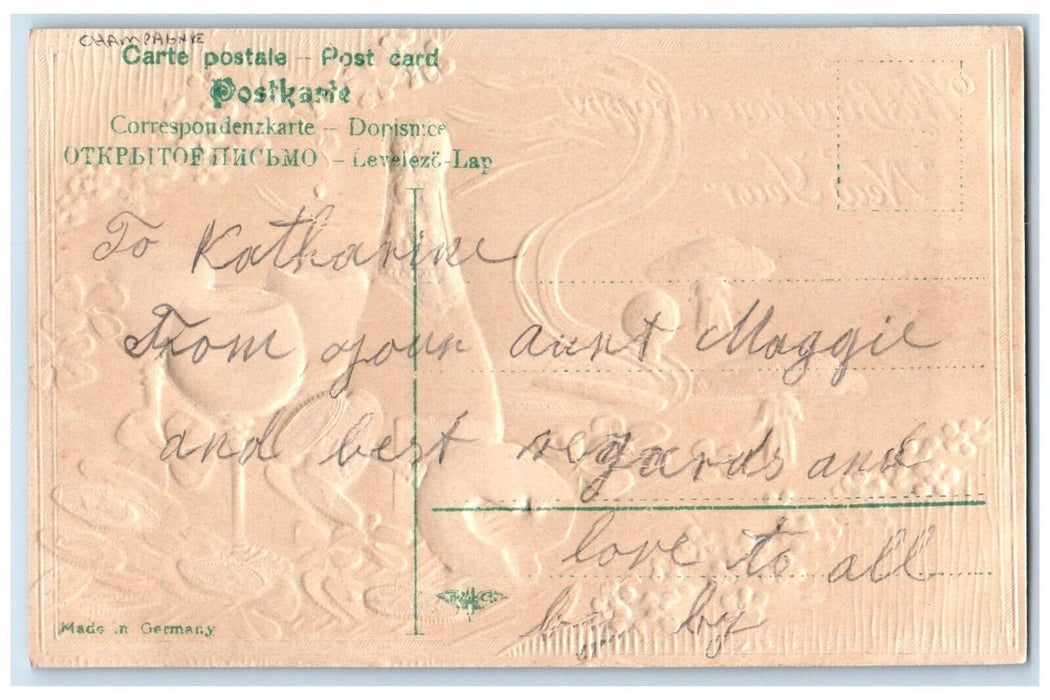 CHAMPAGNE
Carte postale – Post card
Postkarte
Correspondenzkarte – Dopisnice
ОТКРЫТОЕ ПИСЬМО – Levelező-Lap
To Katharine
From your aunt Maggie
and best regards and
love to all
by by
Made in Germany
Wishing you a happy
New Year